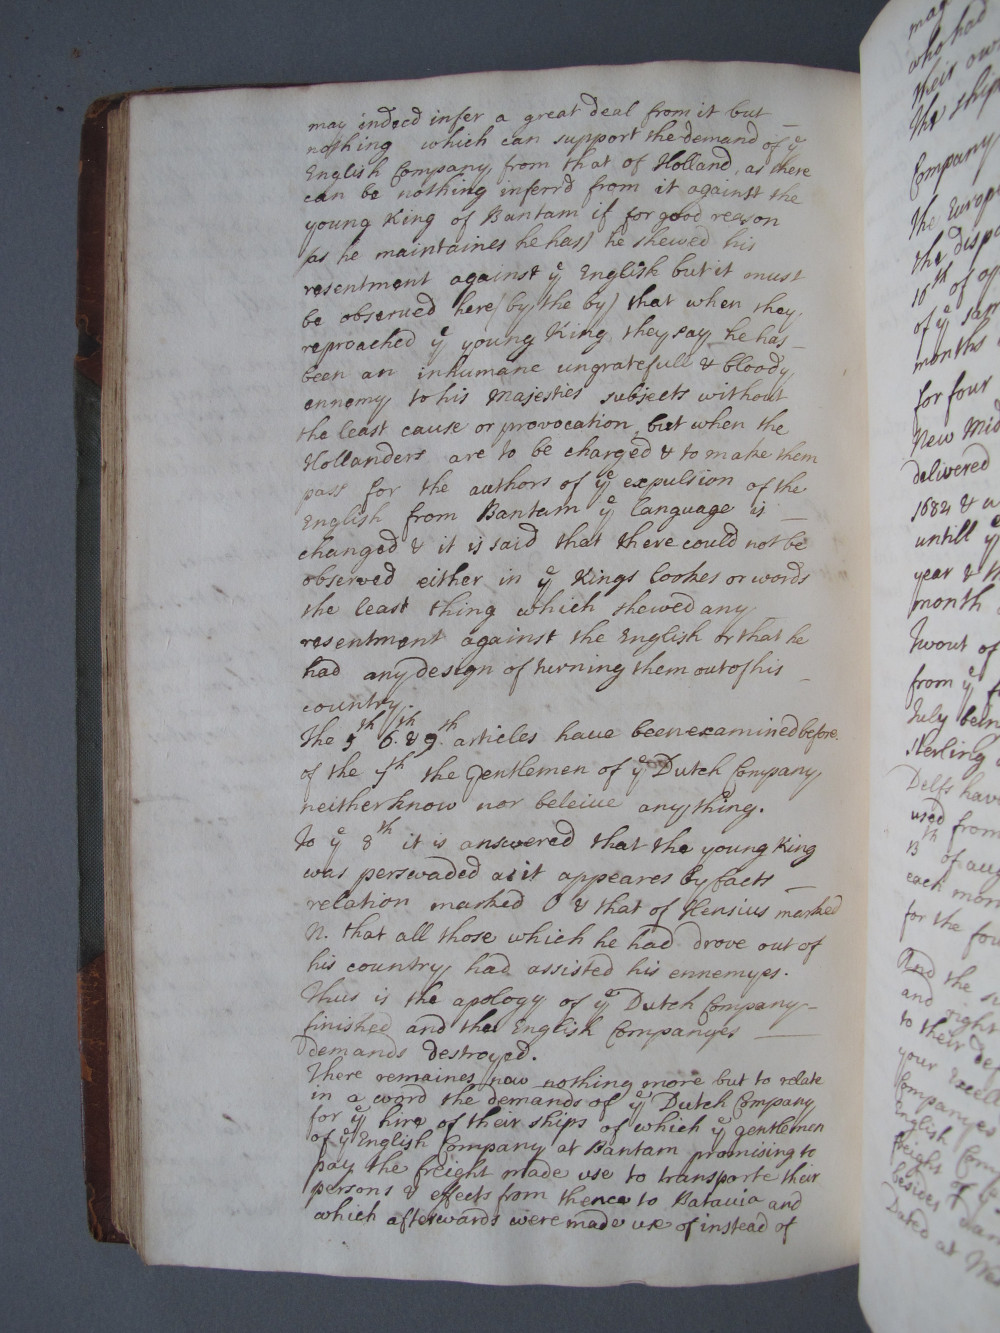 may indeed infer a great deal from it but
nothing which can support the demand of yͤ
English Company from that of Holland, as there
can be nothing inferrd from it against the
young King of Bantam if for good reason
(as he maintaines he has) he shewed his
resentment against yͤ English but it must
be observed here (by the by) that when they
reproached yͤ young King they say he has
been an inhumane ungratefull & bloody
ennemy to his Majesties subjects without
the least cause or provocation but when the
Hollanders are to be charged & to make them
pass for the authors of yͤ expulsion of the
English from Bantam yͤ language is
changed & it is said that there could not be
observed either in yͤ Kings lookes or words
the least thing which shewed any
resentment against the English or that he
had any design of turning them out of his
country.
The 5th 6th & 9th articles have been examined before.
of the 7th the Gentlemen of yͤ Dutch Company
neither know nor beleive any thing.
To yͤ 8th it is answered that the young King
was perswaded as it appeares by facts
relation marked O & that of Hensius marked
N. that all those which he had drove out of
his country had assisted his ennemyes.
Thus is the apology of yͤ Dutch Company
finished and the English Companyes
demands destroyed.
There remaines now nothing more but to relate
in a word the demands of yͤ Dutch Company
for yͤ hire of their ships of which yͤ gentlemen
of yͤ English Company at Bantam promising to
pay the freight made use to transporte their
persons & effects from thence to Batavia and
which afterwards were made use of instead of
may
who had
their own
the ships
Company
the Europ
the disp
16th of
of yͤ sam
months
for four
New Mid
delivered
1682 &
untill yͤ
year &
month
Twout of
from yͤ
July bein
Sterling
Delfs hav
used from
13th of aug
each mon
for the fou
And the
and right
to their de
your Excell
Companyes
English Com
freight of
besides
Dated at